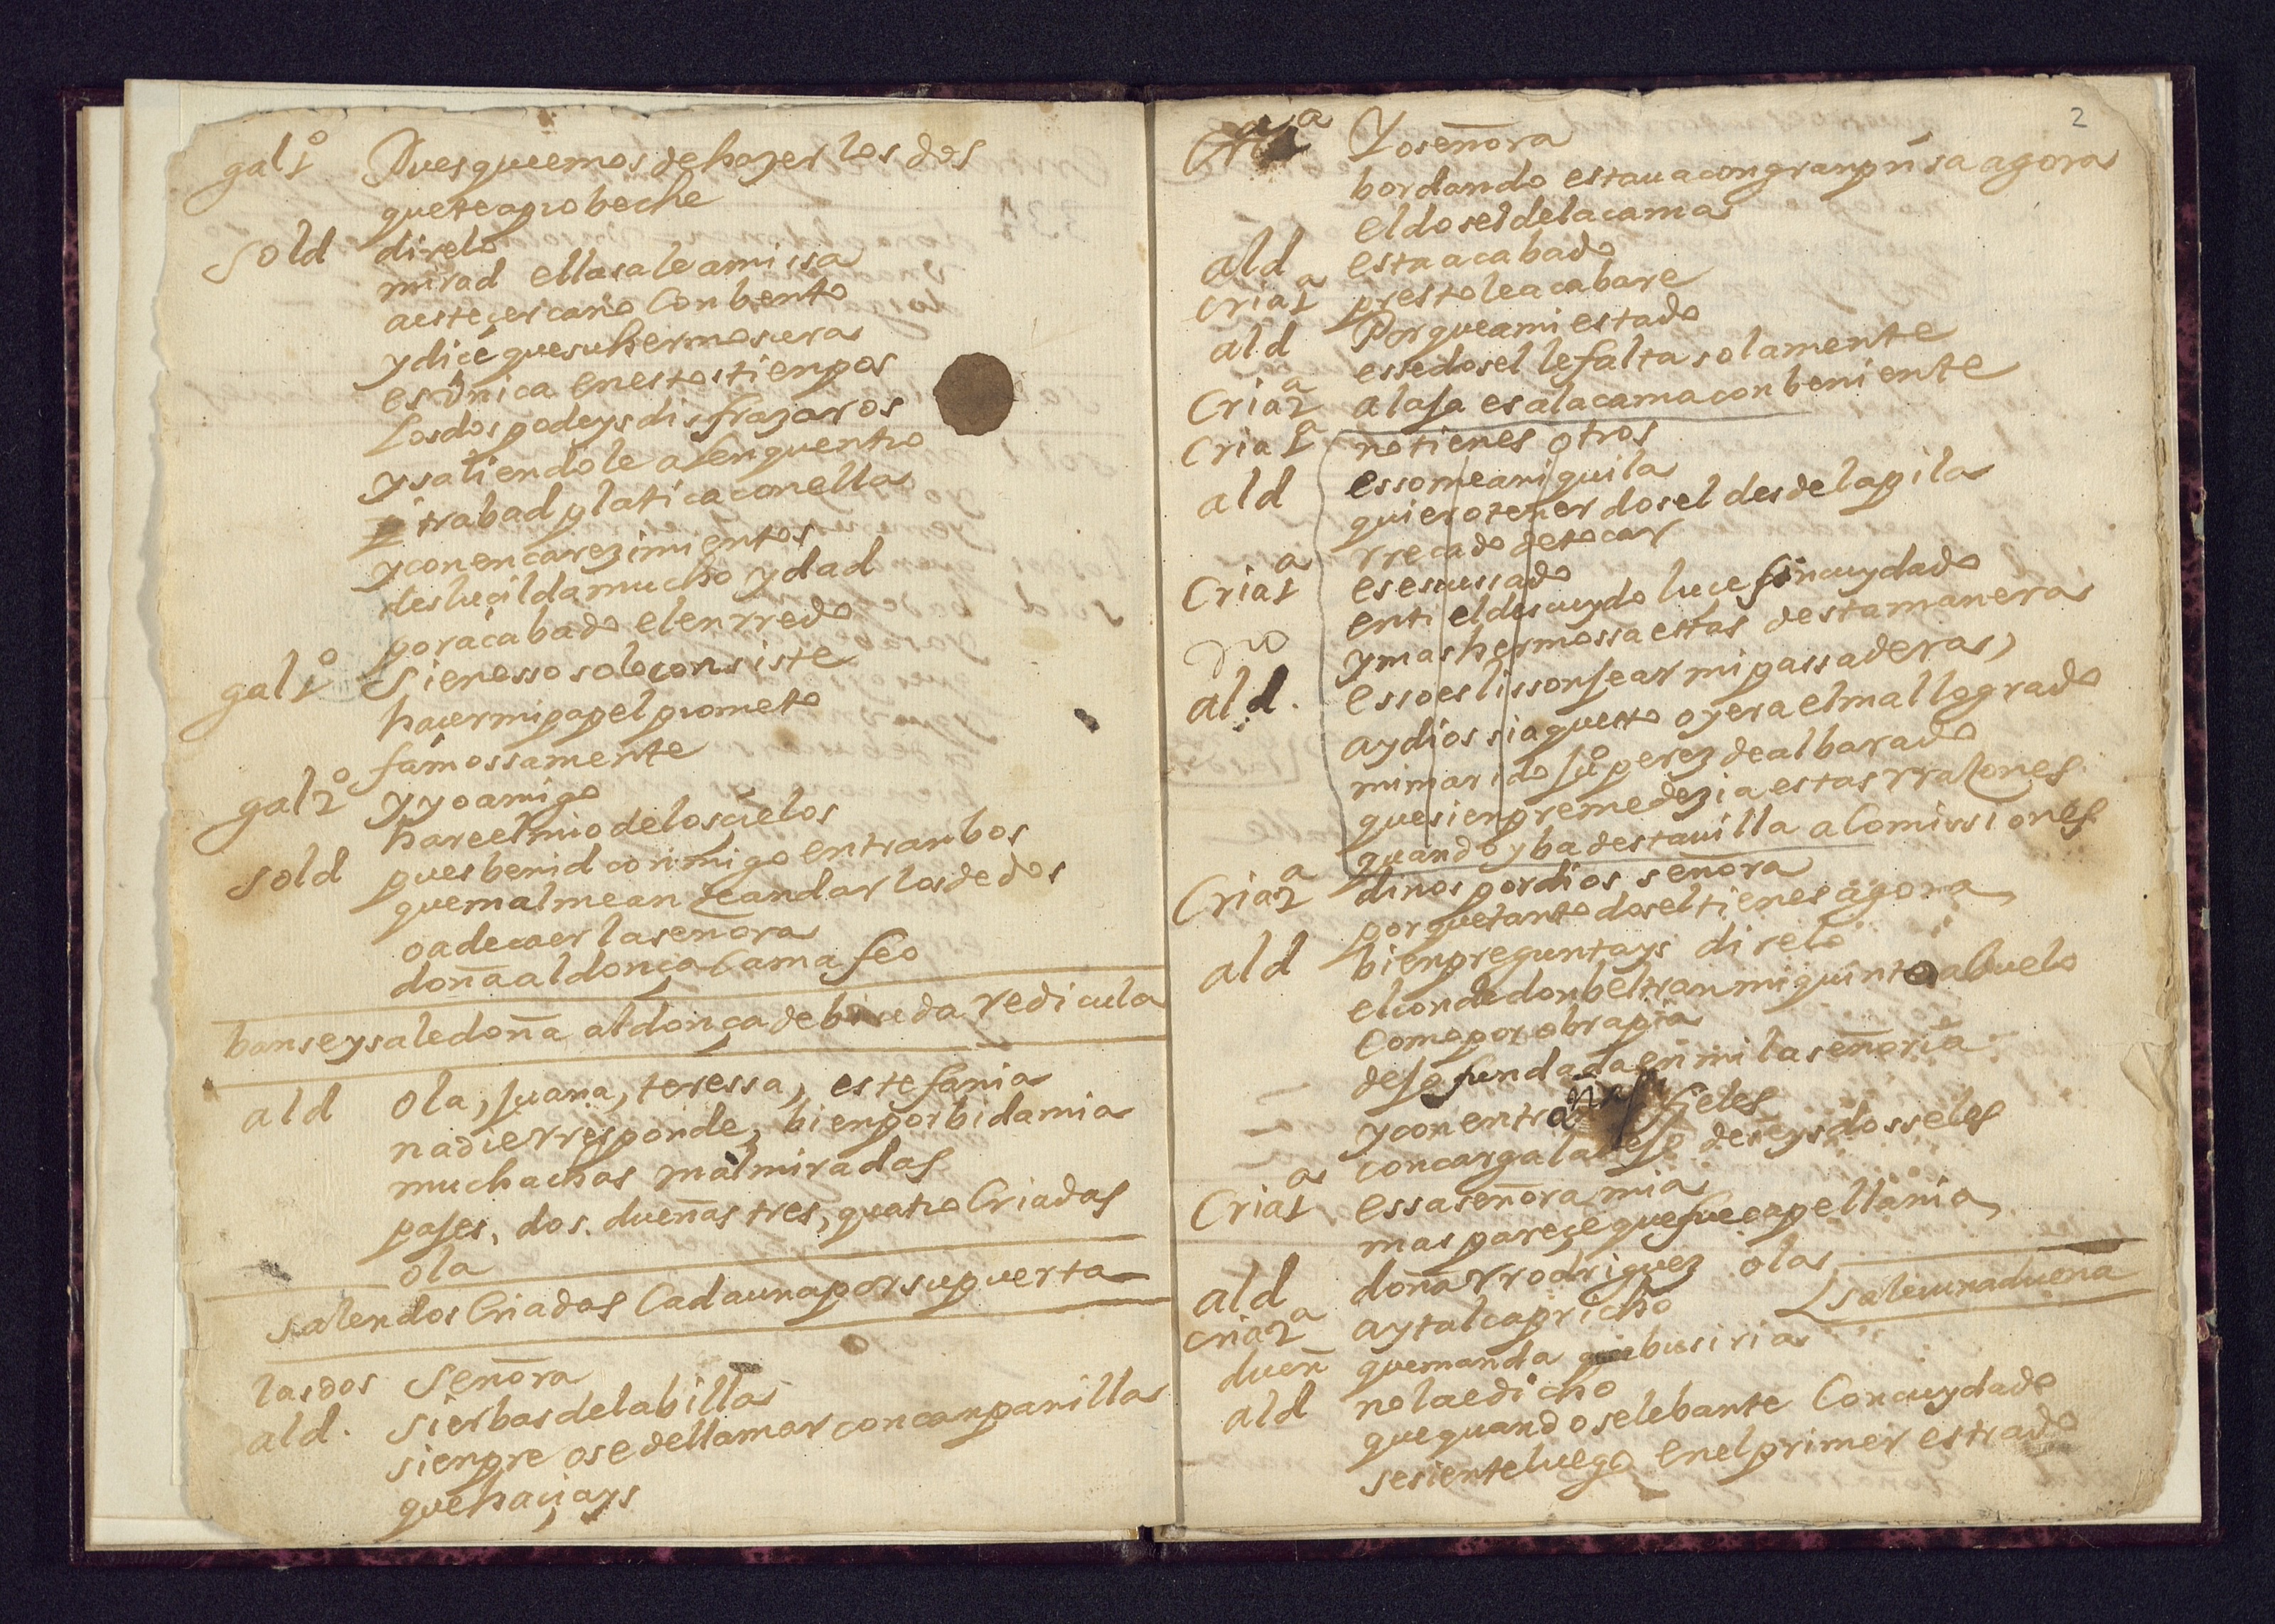 gal 1º Pues que emos de hazer los dos
que te aprobeche
sold direlo
mirad ella sale a missa
a este çercano Conbento
y dice que su hermosura
es vnica en estos tienpos
Los dos podeys disfrazaros
y saliendole al enquentro
trabad platica con ella
y con encarezimientos
desluçilda mucho y dad
por acabado el enrredo
gal 1º Si en esso solo consiste
hacer mi papel prometo
famossamente
gal 2º Y yo amigo
hare el mio de los çielos
sold pues benid conmigo entranbos
que mal me an de andar los dedos
o a de caer la señora
doña aldonça Camafeo
banse y sale doña aldonça de biuda rediculа
ald Ola, Juana, teressa, estefania
nadie rresponde, bien por bida mia
muchachas mal miradas
pajes, dos. dueñas tres, quatro Criadas
ola
salen dos Criadas Cada una por su puerta
las dos Señora
ald. Sierbas de la billa
sienpre os e de llamar con canpanilla
que haçiays
2
Yo señora
bordando estaua con gran prisa agora
el dosel de la cama
ald esta acabado
cria 1ª presto le acabare
ald Porque a mi estado
esse dosel le falta solamente
Cria 2ª alaja es a la cama conbeniente
Cria 1ª no tienes otros
ald esso me aniquila
quiero tener dosel desde la pila
rrecado de tocar
Cria 1ª es escussado
en ti el descuydo luce sin cuydado
no y mas hermossa estas desta manera
ald. esso es lissonjear mi passadera
ay dios si a questo oyera el mal logrado
mi marido juº perez de albarado
que sienpre me dezia estas rrazones
quando yba desta uilla a Comissiones
Cria 2ª dinos por dios señora
porque tanto dosel tienes agora
ald bien preguntays direlo
el conde don beltran mi quinto abuelo
Como por obra pia
dejo fundada en mi la señoria
y con entrañas fieles
con carga la dejo de seys dosseles
Cria 1ª essa señora mia
mas pareçe que fue capellania
ald doña rrodriguez ola
sale una dueña
cria 2ª ay tal capricho
dueñ que manda busiria
ald no la e dicho
que quando se lebante Con cuydado
se siente luego en el primer estrado